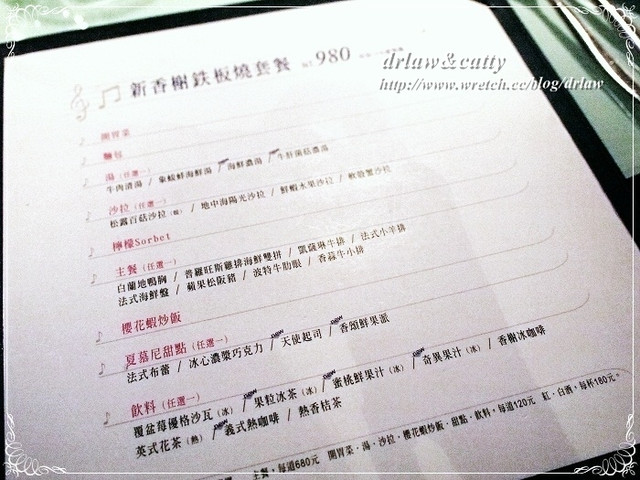 drlaw&catty
http://www.wretch.cc/blog/drlaw
新香榭鉄板燒套餐 NT 980
開胃菜
麵包
湯（任選一）
牛肉清湯 / 象皇鮮海鮮湯 / 海鮮濃湯 / 牛肝菌菇濃湯
沙拉（任選一）
松露百菇沙拉（熱） / 地中海陽光沙拉 / 鮮蝦水果沙拉 / 軟殼蟹沙拉
檸檬Sorbet
主餐（任選一）
白蘭地鴨胸 / 普羅旺斯雞排海鮮雙拼 / 凱薩琳牛排 / 法式小羊排
法式海鮮盤 / 蘋果松阪豬 / 波特牛肋眼 / 香蒜牛小排
櫻花蝦炒飯
夏慕尼甜點（任選一）
法式布蕾 / 冰心濃漿巧克力 / 天使起司 / 香頌鮮果派
飲料（任選一）
覆盆莓優格沙瓦（冰） / 果粒冰茶（冰） / 蜜桃鮮果汁（冰） / 奇異果汁（冰） / 香榭冰咖啡
英式花茶（熱） / 義式熱咖啡 / 熱香桔茶
主餐，每道680元 開胃菜．湯．沙拉．櫻花蝦炒飯．甜點．飲料，每道120元 紅．白酒，每杯180元。